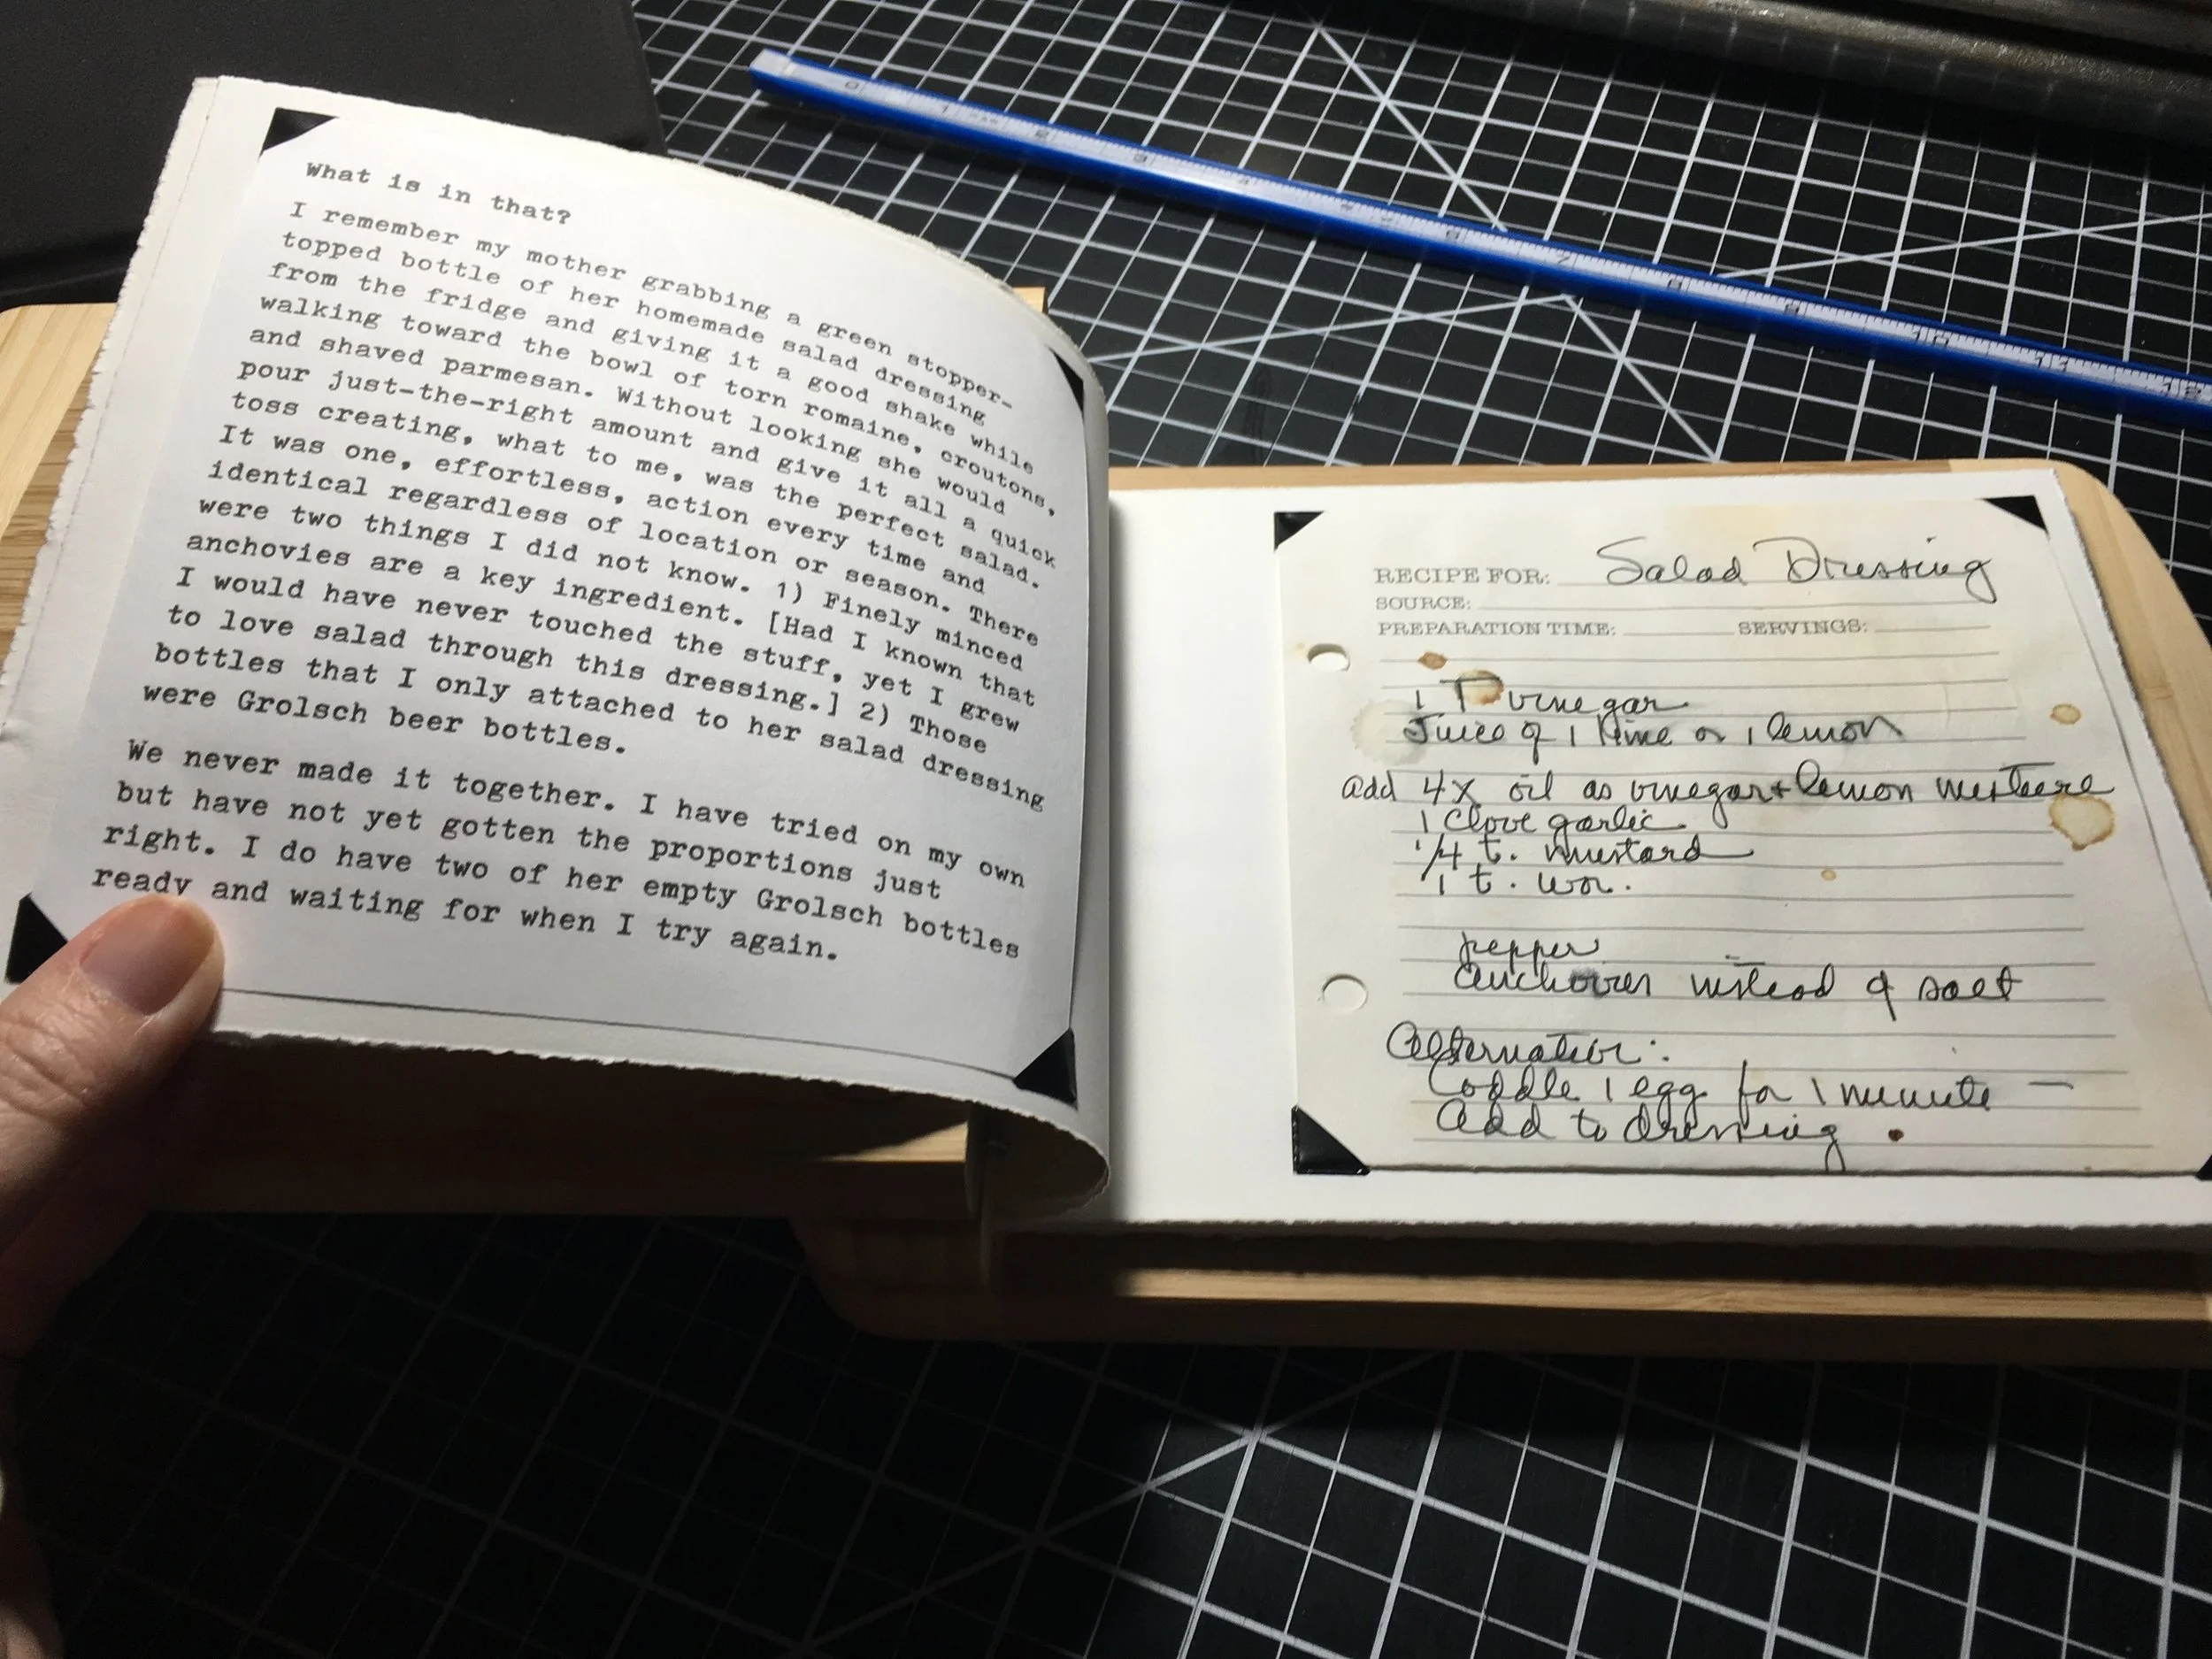 What is in that?
I remember my mother grabbing a green stopper-
topped bottle of her homemade salad dressing
from the fridge and giving it a good shake while
walking toward the bowl of torn romaine, croutons,
and shaved parmesan. Without looking she would
pour just-the-right amount and give it all a quick
toss creating, what to me, was the perfect salad.
It was one, effortless, action every time and
identical regardless of location or season. There
were two things I did not know. 1) Finely minced
anchovies are a key ingredient. [Had I known that
I would have never touched the stuff, yet I grew
to love salad through this dressing.] 2) Those
bottles that I only attached to her salad dressing
were Grolsch beer bottles.
We never made it together. I have tried on my own
but have not yet gotten the proportions just
right. I do have two of her empty Grolsch bottles
ready and waiting for when I try again.
RECIPE FOR: Salad Dressing
SOURCE:
PREPARATION TIME: SERVINGS:
1 T vinegar
Juice of 1 lime or 1 lemon
add 4x oil as vinegar + lemon mixture
1 clove garlic
1/4 t. mustard
1 t. wor.
pepper
anchovies instead of salt
Alternative:
Coddle 1 egg for 1 minute —
add to dressing.
0 1 2 3 4 5 6 7 8 9 10 11 12